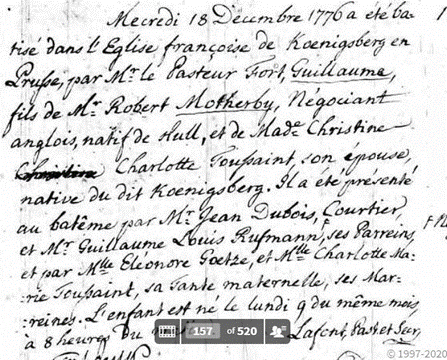 Mecredi 18 Decembre 1776 a été ba-
tisé dans l'Eglise françoise de Koenigsberg en
Prusse, par Mr. le Pasteur Fort, Guillaume,
fils de Mr. Robert Motherby, Négociant
anglois, natif de Hull, et de Made. Christine
Charlotte Toussaint, son épouse,
native du dit Koenigsberg. Il a été présenté
au batême par Mr. Jean Dubois, Courtier,
et Mr. Guillaume Louis Rufmann, ses Parreins,
et par Mlle Eléonore Goetze, et Mlle Charlotte Ma-
rie Toussaint, sa Tante maternelle, ses Mar-
reines. L'enfant est né le lundi 9 du même mois,
à 8 heures du
157 of 520
© 1997-2020